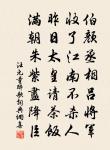 伯顏丞相呂將軍
收了江南不殺人
昨日太皇請茶飯
滿朝朱紫盡降臣
汪元量醉歌詞典網集